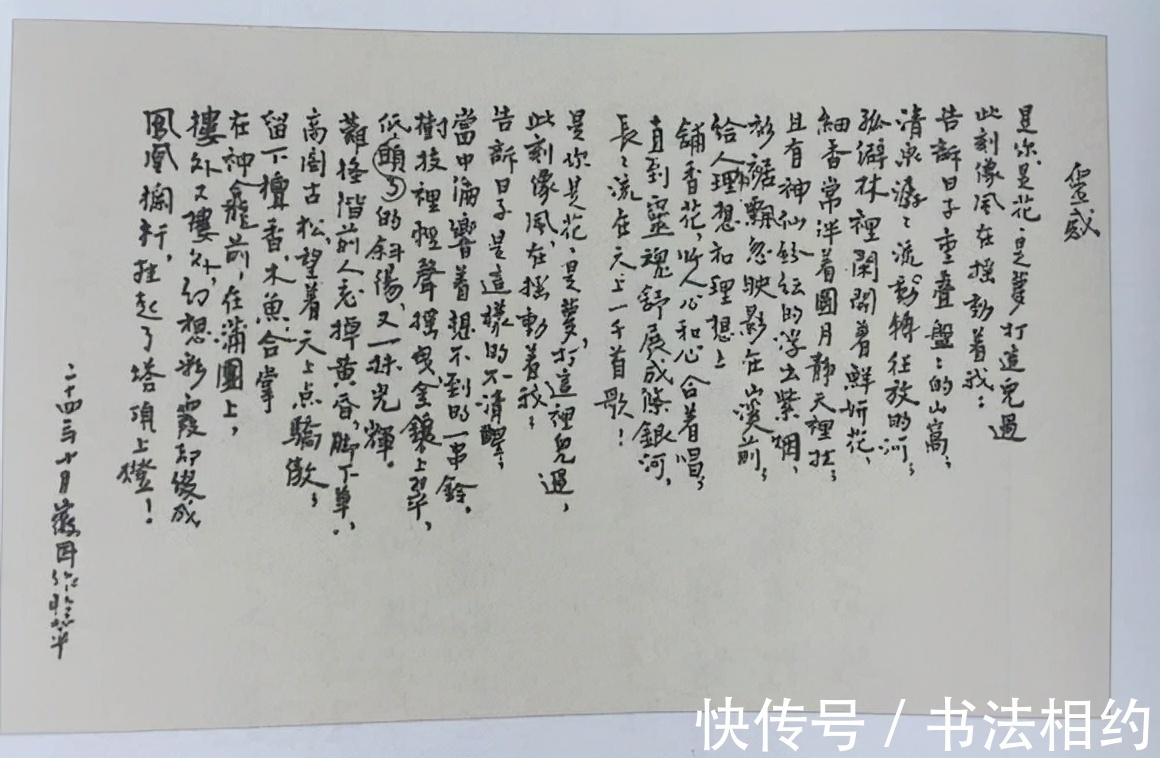 靈感
是你，是花，是夢，打這兒過
此刻像風在搖動着我；
告訴日子重疊盤盤的山窩；
清泉潺潺流動轉狂放的河；
孤僻林裡閑開着鮮妍花，
細香常伴着圓月靜天裡掛；
且有神仙紛紜的浮出紫烟，
衫裾飄忽映影在山溪前；
給人的理想和理想上
舖香花，叫人心和心合着唱；
直到靈魂舒展成條銀河，
長長流在天上一千首歌！
是你，是花，是夢，打這裡兒過，
此刻像風，在搖動着我；
告訴日子是這樣的不清醒；
當中偏響着想不到的一串鈴，
樹枝裡輕聲搖曳；金鑲上翠，
低了頭的斜陽，又一抹光輝。
難怪階前人忘掉黃昏，脚下草，
高閣古松，望着天上点驕傲；
留下檀香，木魚，合掌
在神龕前，在蒲團上，
樓外又樓外，幻想彩霞却綴成
鳳凰欄杆，挂起了塔頂上燈！
二十四年十月徽因作於北平
快传号 / 书法相约